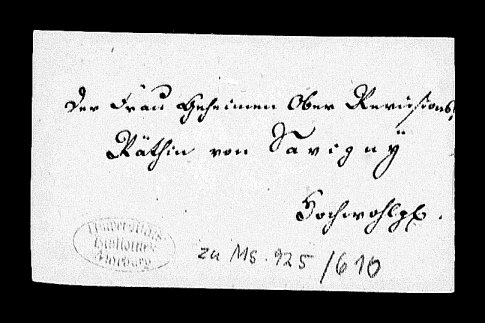 Der Frau Geheimen Ober Revisions,
Räthin von Savigny
Hochwohlgb.
Universitäts
Bibliothek
Marburg
zu Ms. 925/610